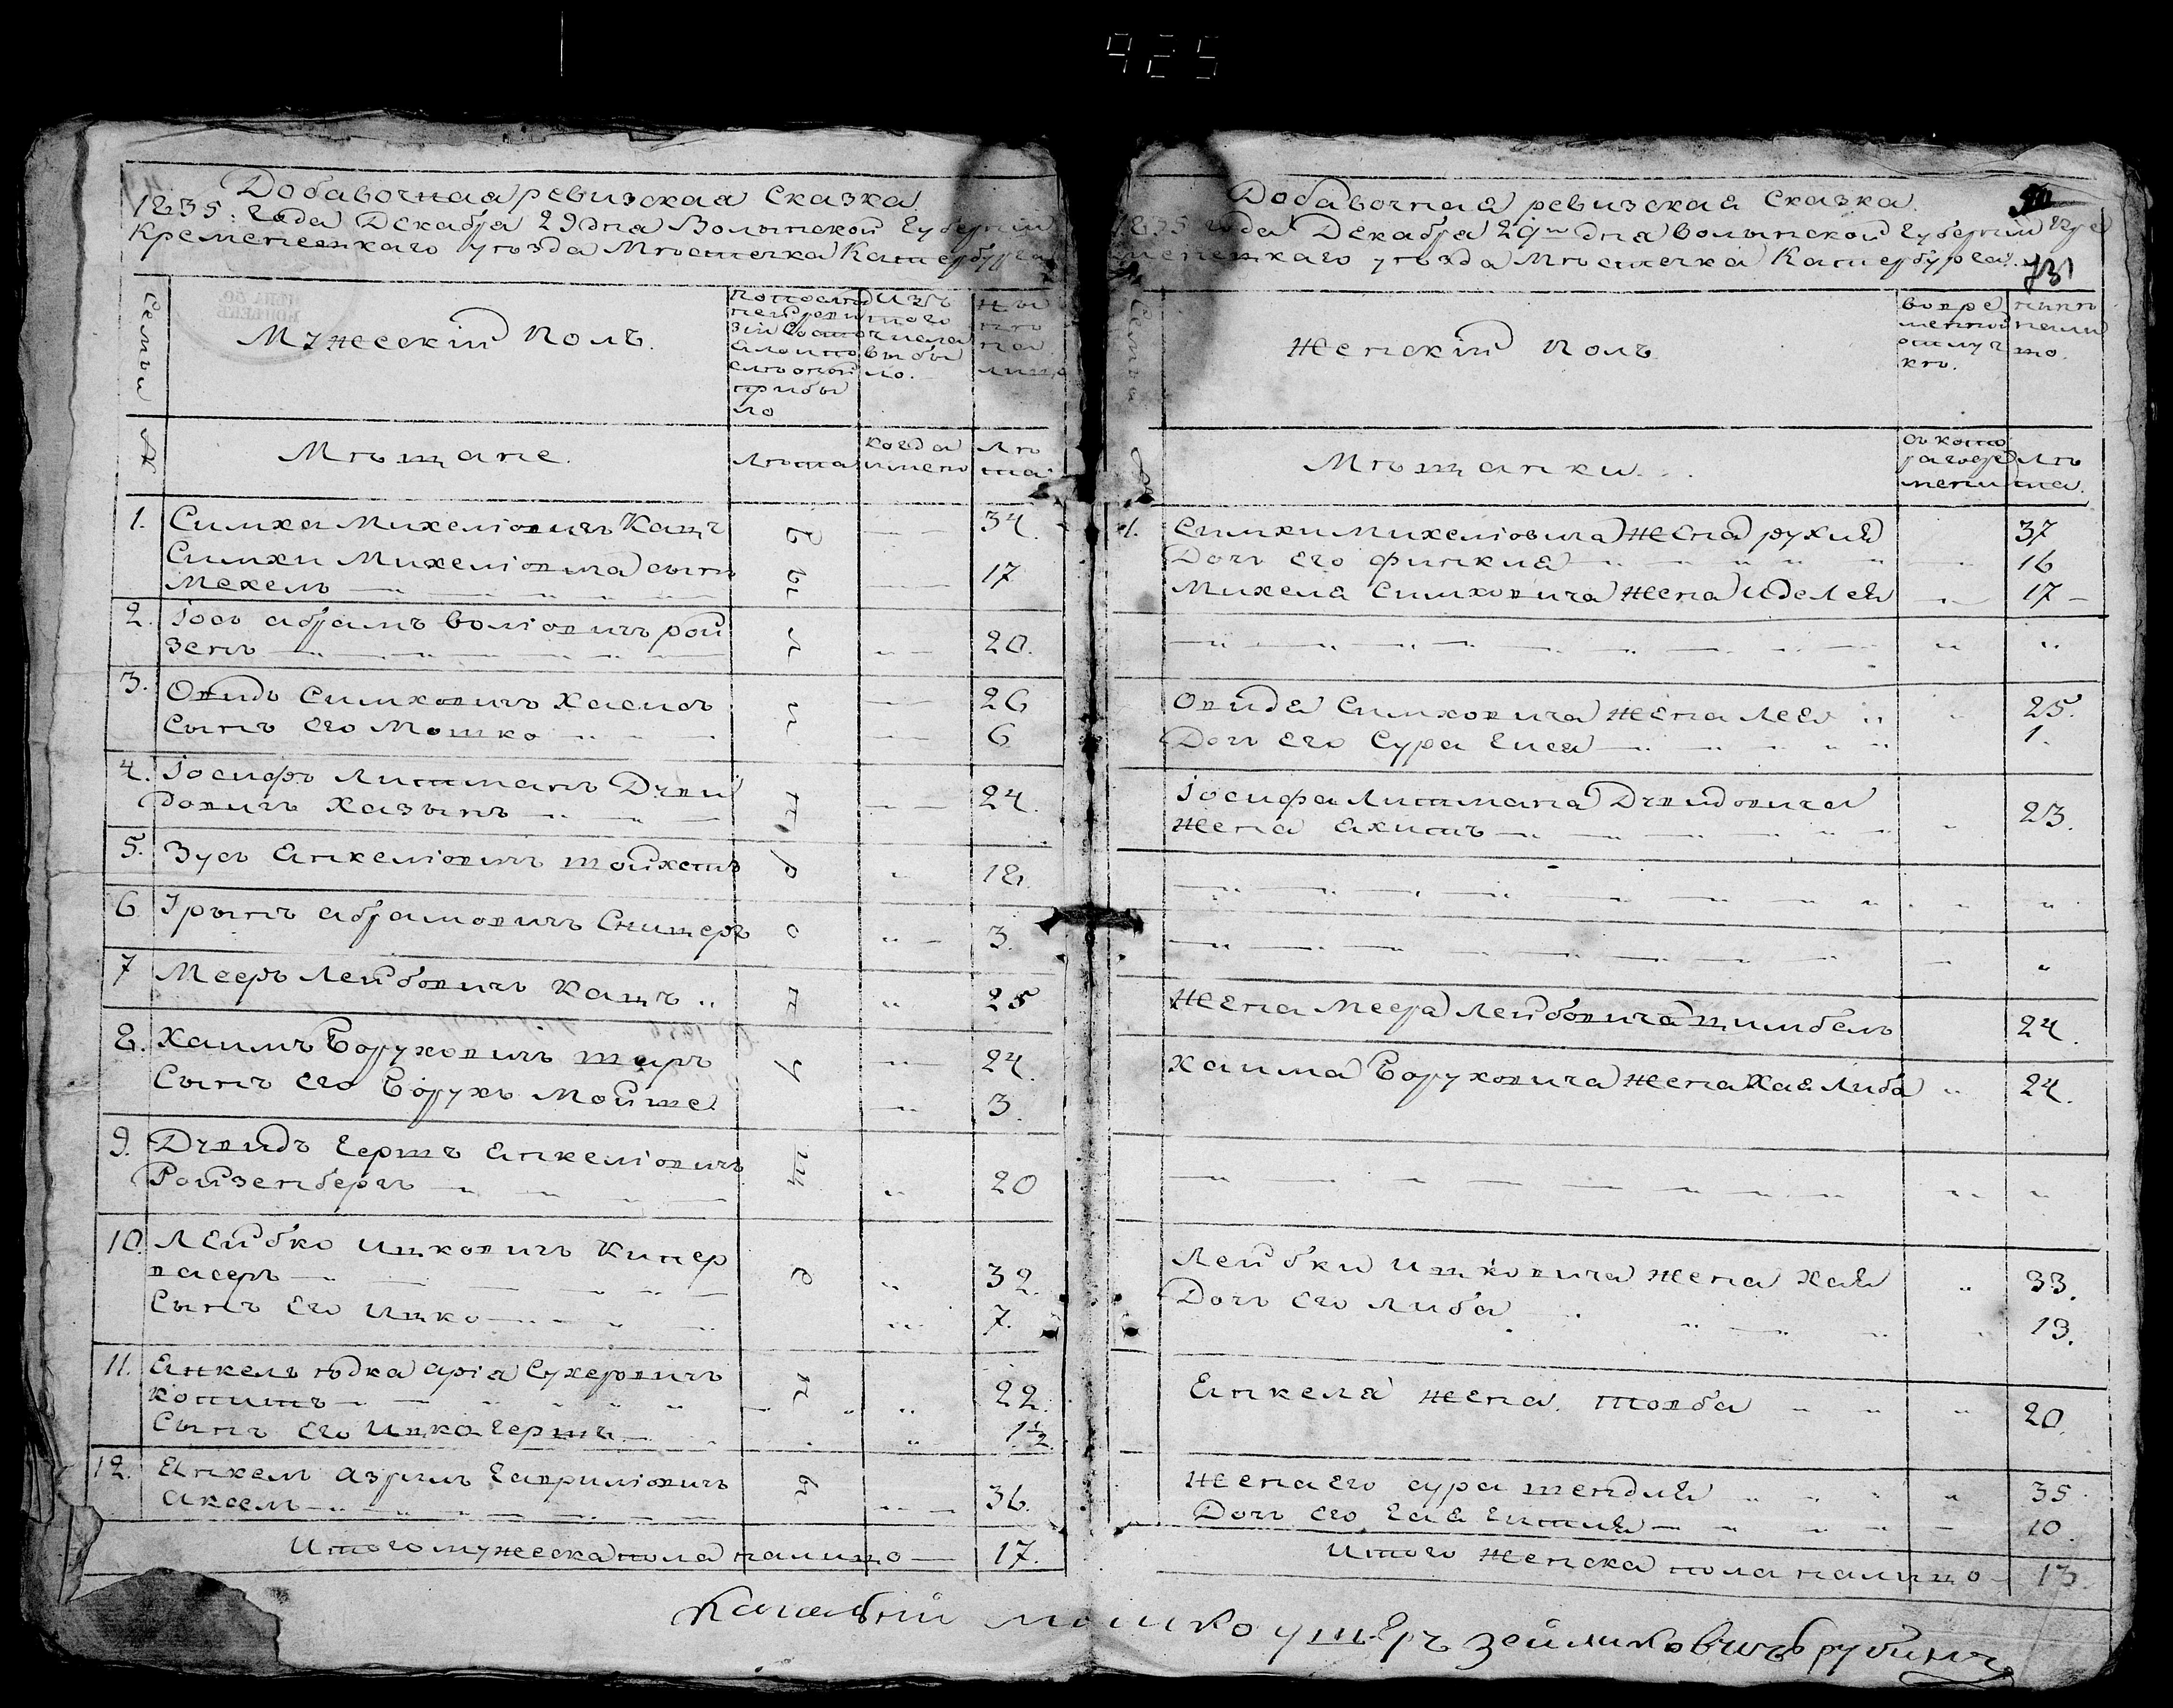 425
Добавочная ревизская сказка
1835: года Декабря 29 дня Волынской Губернии
Кременецкаго уезда Местечка Катербурга
Семьи
Мужескій полъ.
ны
не
на
лицо
№
Мещане.
Лета
когда
имено
Ле
та
1. Симха Михеліовичъ Кацъ — 34.
Симхи Михеліовича сынъ
Мехель — 17
2. Іось абрамъ Воліовичъ рой
зенъ — 20.
3. Овидъ Симховичъ Хасисъ — 26
Сынъ его Мошко — 6
4. Іосифъ Литманъ Дувид
довичъ Хазынъ — 24.
5. Зусь Янкеліовичъ — 18.
6 абрамовичъ — 3.
7 Мееръ Лейбовичъ Кацъ „ 25
8. Хаимъ Боруховичъ — 24.
Сынъ его Борухъ Мойше — 3.
9. Дувидъ Гершъ Янкеліовичъ
Ройзенберъ — 20
10. Лейбко Ицковичъ Кипер
васеръ — 32.
Сынъ его Ицко — 7.
11. Янкель юдка аріа Сухеровичъ
— 22.
Сынъ его Ицко Гершъ — 1½.
12. Янкель Азриль Гавриліовичъ
Аксель — 36.
Итого мужеска пола налицо — 17.
Добавочная ревизская сказка.
50
1835 года Декабря 29го дня Волынской губерніи Кре
менецкаго уезда Местечка Катербурга.
73
Семья
Женскій полъ
вовре
менной
отлуч
ке.
ныне
нали
цо.
Мещанки.
съ кото
раго вре
мени
Ле
та.
1. Симхи Михеліовича жена рухля 37
Дочь его финкия — 16
Михеля Симховича жена Иделея 17 —
Овидя Симховича жена Лея „ 25.
Дочь его Сура Гися — 1.
Іосифа Литмана Дувидовича
жена Яхитъ — 23.
Жена Меера Лейбовича Цимбель 24.
Хаима Боруховича жена Хая Либа „ 24.
Лейбки Ицковича жена Хая „ 33.
Дочь его Либа 13.
Янкеля жена Товба „ 20.
Жена его сура шендля „ 35
Дочь его Гая Гитля — 10.
Итого женска пола налицо — 13.
Кагальный Мошко ушеръ Зейликовичъ рубинъ